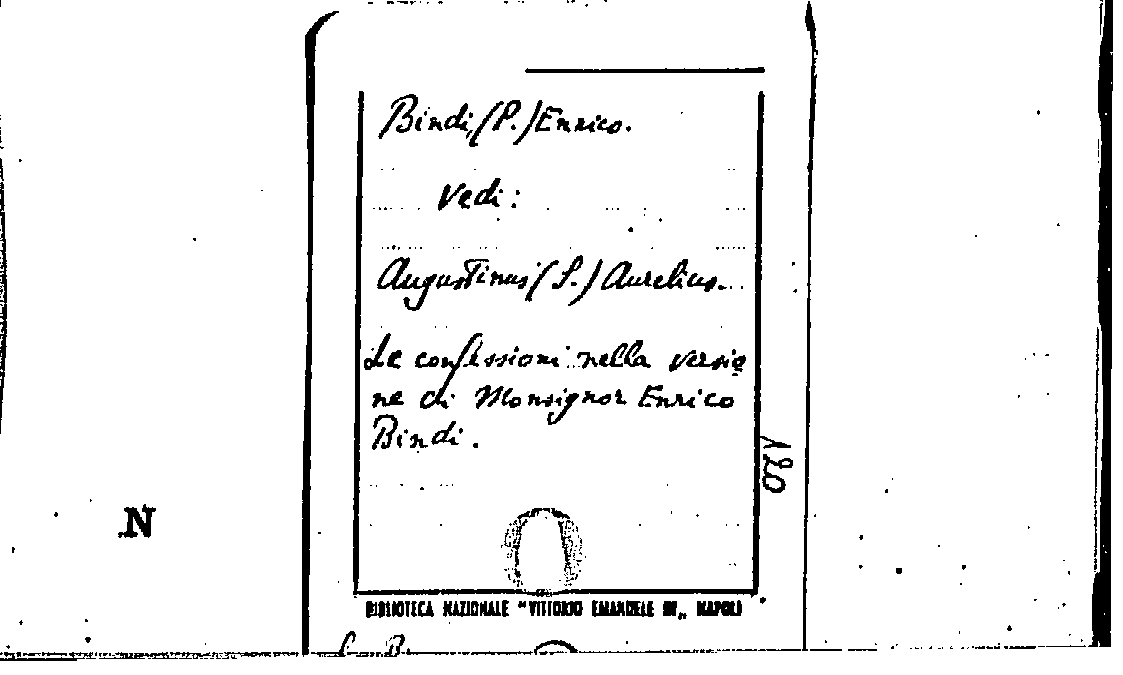 Bindi, (P.) Enrico.
Vedi:
Augustinus (S.) Aurelius.
Le confessioni nella versio
ne di Monsignor Enrico
Bindi.
120
N
BIBLIOTECA NAZIONALE "VITTORIO EMANUELE III„ NAPOLI